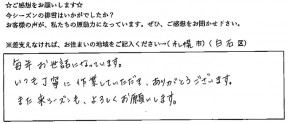 ☆ご感想をお願いします☆
今シーズンの排雪はいかがでしたか?
お客様の声が、私たちの原動力になっています。ぜひ、ご感想をお聞かせ下さい。
※差支えなければ、お住まいの地域をご記入ください→(札幌市)(白石区)
毎年お世話になっています。
いつも丁寧に作業していただき、ありがとうございます。
また来シーズンも、よろしくお願いします。